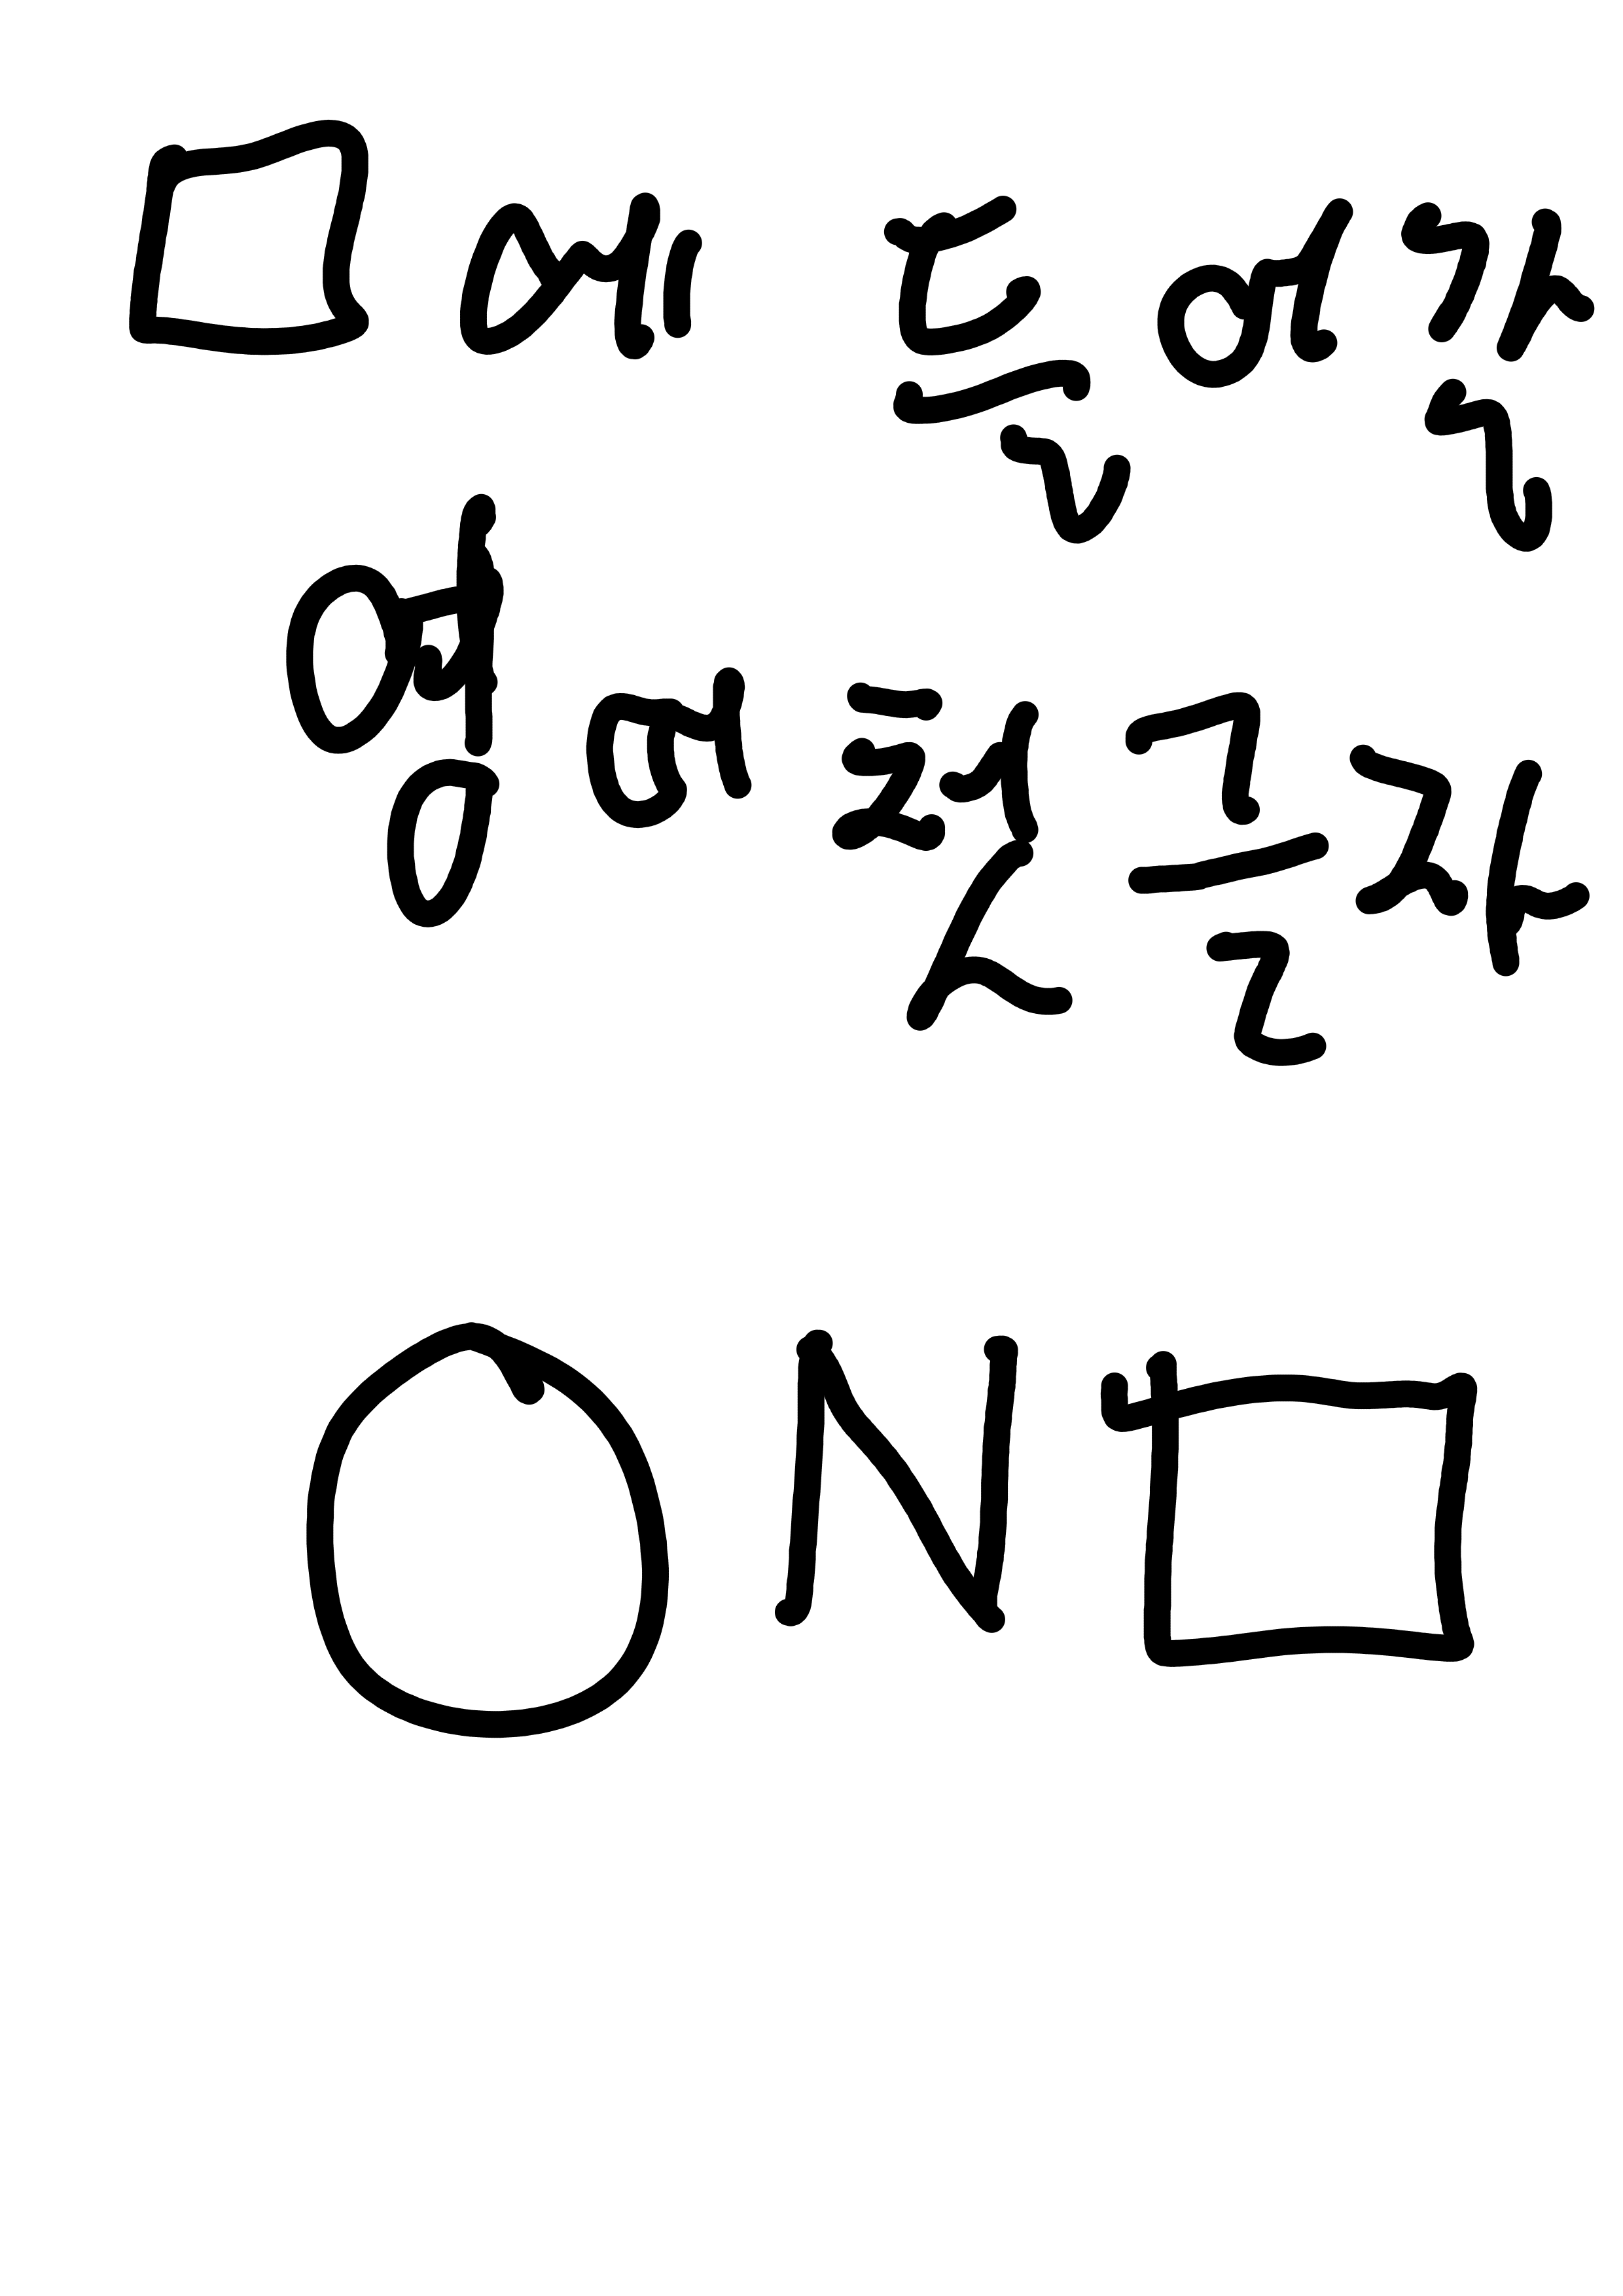 □에 들어갈
영어 첫글자
O N □